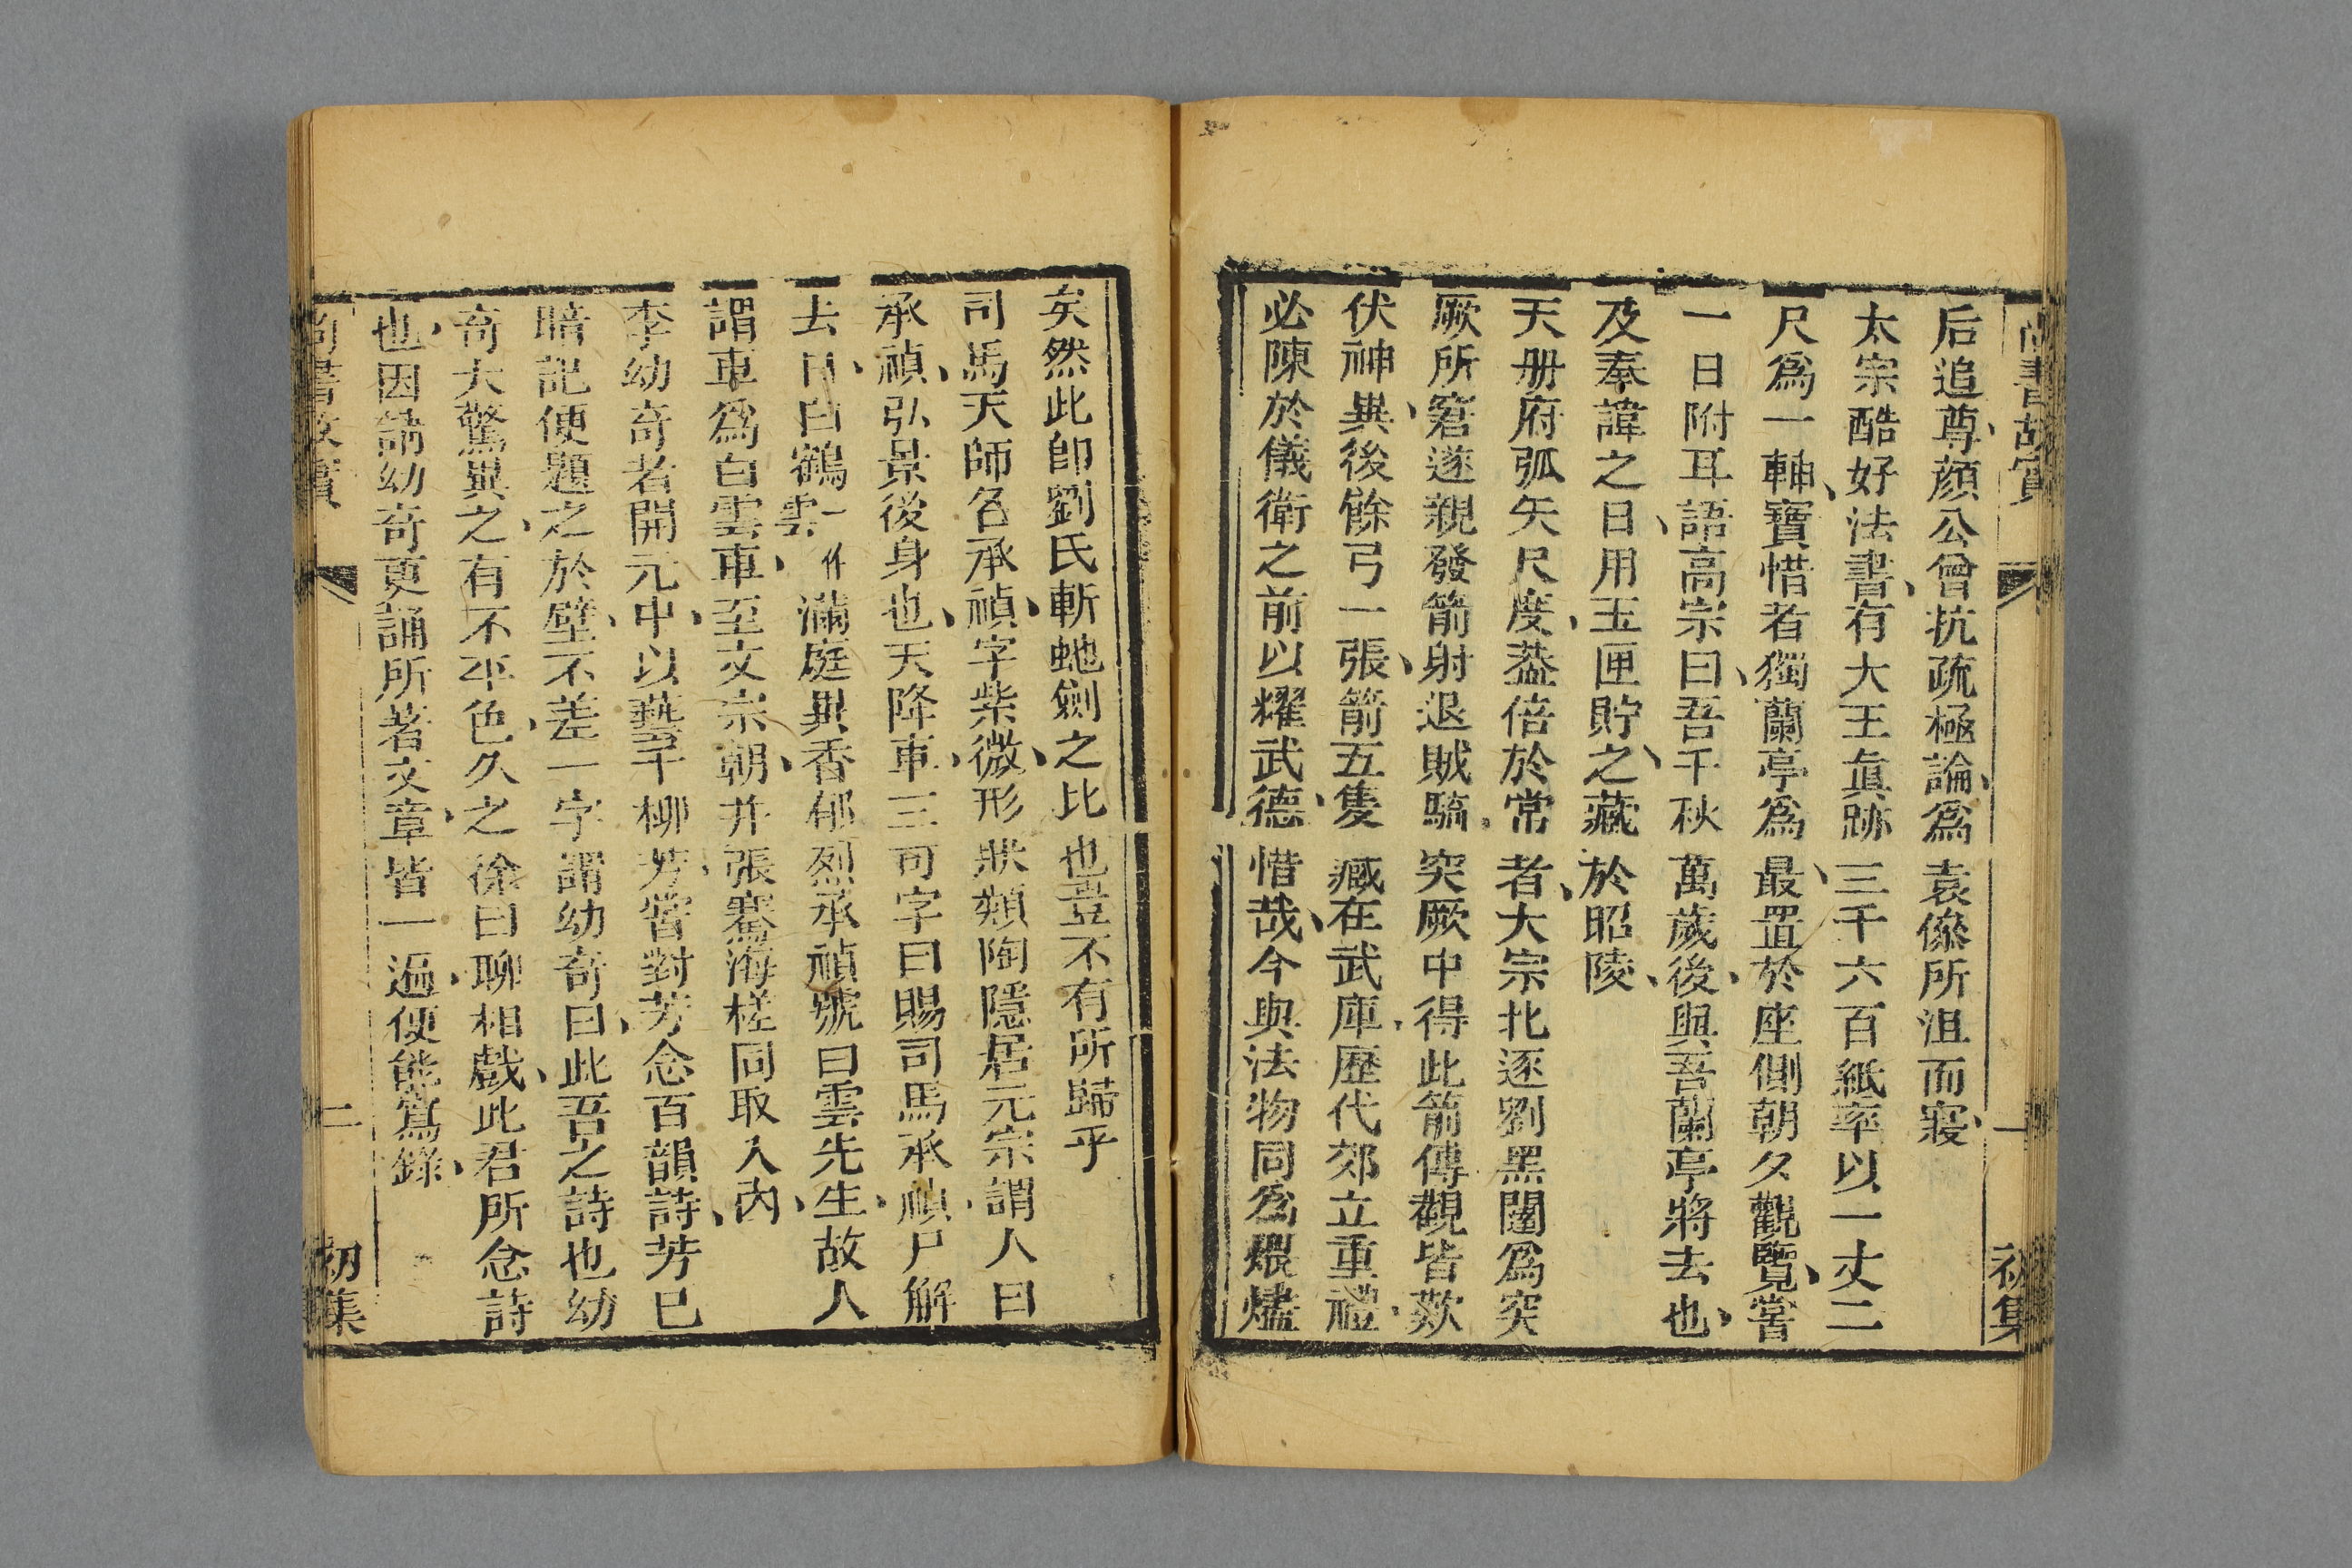 尚書故實
一
初集
后追尊顔公曾抗疏極論爲袁傪所沮而寢
太宗酷好法書有大王眞跡三千六百紙率以一丈二
尺爲一軸寶惜者獨蘭亭爲最置於座側朝夕觀覽嘗
一日附耳語高宗曰吾千秋萬歲後與吾蘭亭將去也
及奉諱之日用玉匣貯之藏於昭陵
天册府弧矢尺度葢倍於常者大宗北逐劉黑闥爲突
厥所窘遂親發箭射退賊騎突厥中得此箭傳觀皆歎
伏神異後餘弓一張箭五隻藏在武庫歷代郊立重禮
必陳於儀衛之前以耀武德惜哉今與法物同爲煨燼
矣然此卽劉氏斬虵劍之比也豈不有所歸乎
司馬天師名承禎字紫微形狀類陶隱居元宗謂人曰
承禎弘景後身也天降車三司字曰賜司馬承禎尸解
去日白鶴一作雲滿庭異香郁烈承禎號白雲先生故人
謂車爲白雲車至文宗朝并張騫海槎同取入內
李幼奇者開元中以藝干柳芳嘗對芳念百韻詩芳已
暗記便題之於壁不差一字謂幼奇曰此吾之詩也幼
奇大驚異之有不平色久之徐曰聊相戲此君所念詩
也因請幼奇更誦所著文章皆一遍便能寫錄
尚書故實
二
初集